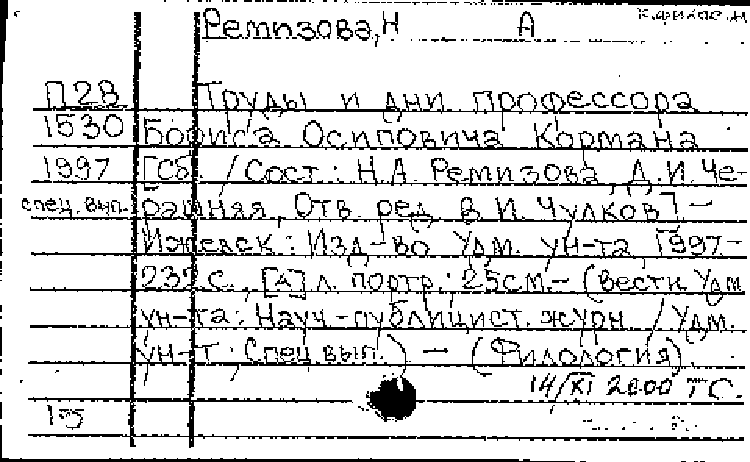 Ремизова, Н А
П28 Труды и дни профессора
1530 Бориса Осиповича Кормана
1997 [Сб. / Сост.: Н.А. Ремизова, Д.И. Че-
спец. вып. рашняя, Отв. ред. В.И. Чулков] -
Ижевск: Изд-во Удм. ун-та, 1997.-
232 с., [А] л. портр.; 25см.- (Вестн. Удм.
ун-та: Науч.-публицист. журн. / Удм.
ун-т; Спец. вып.) - (Филология).
14/XI 2000 ТС.